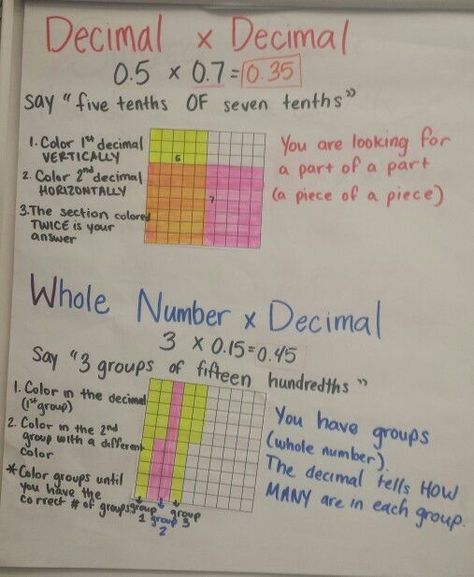 Decimal x Decimal
0.5 x 0.7 = 0.35
say "five tenths OF seven tenths"
1. Color 1st decimal
VERTICALLY
2. Color 2nd decimal
HORIZONTALLY
3. The section colored
TWICE is your
answer
5
7
You are looking for
a part of a part
(a piece of a piece)
Whole Number x Decimal
3 x 0.15=0.45
Say "3 groups of fifteen hundredths"
1. Color in the decimal
(1st group)
2. Color in the 2nd
group with a different
color
*Color groups until
you have the
correct # of groups
group
1
group
2
group
3
You have groups
(whole number).
The decimal tells HOW
MANY are in each group.